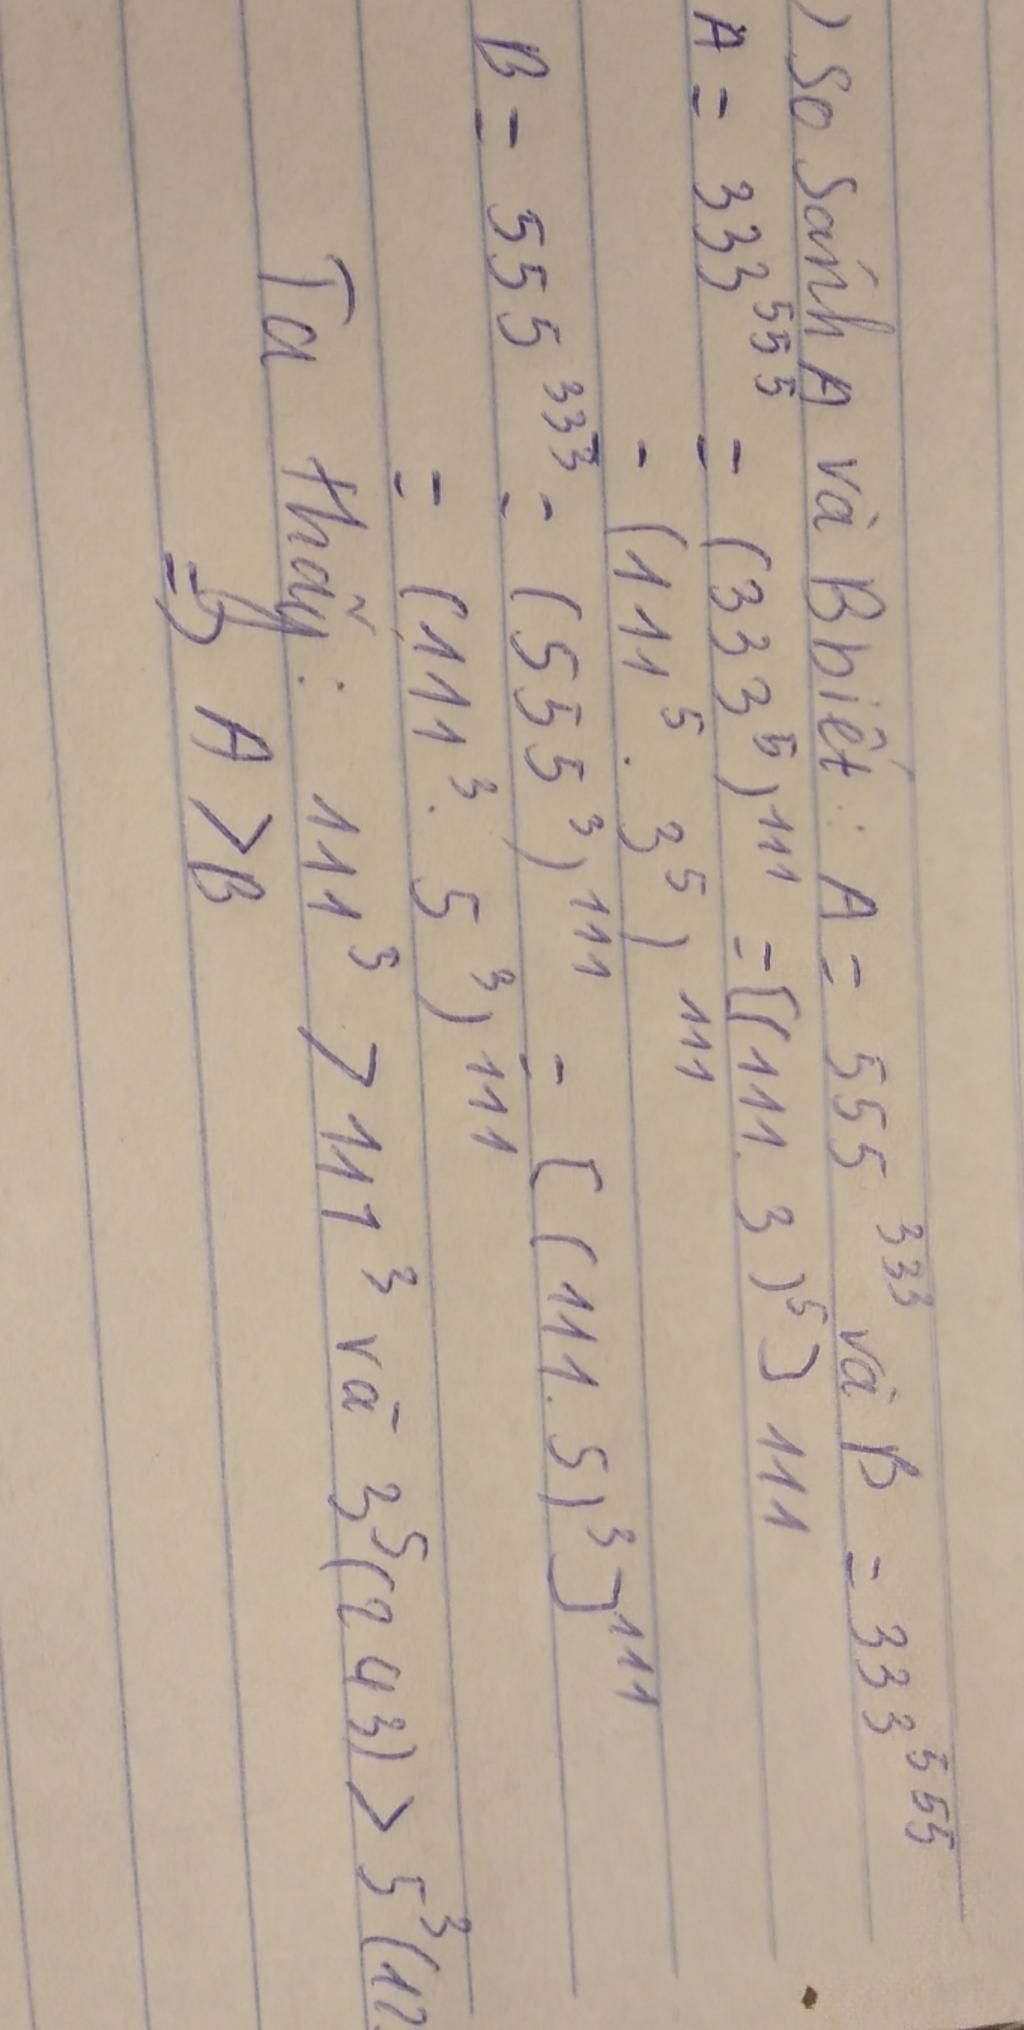 ) So Sánh A và B biết: A = 555³³³ và B = 333⁵⁵⁵
A = 333⁵⁵⁵ = (333⁵)¹¹¹ = [(111.3)⁵]¹¹¹
= (111⁵.3⁵)¹¹¹
B = 555³³³ = (555³)¹¹¹ = [(111.5)³]¹¹¹
= (111³.5³)¹¹¹
Ta thấy: 111⁵ > 111³ và 3⁵(243) > 5³(12
=> A > B